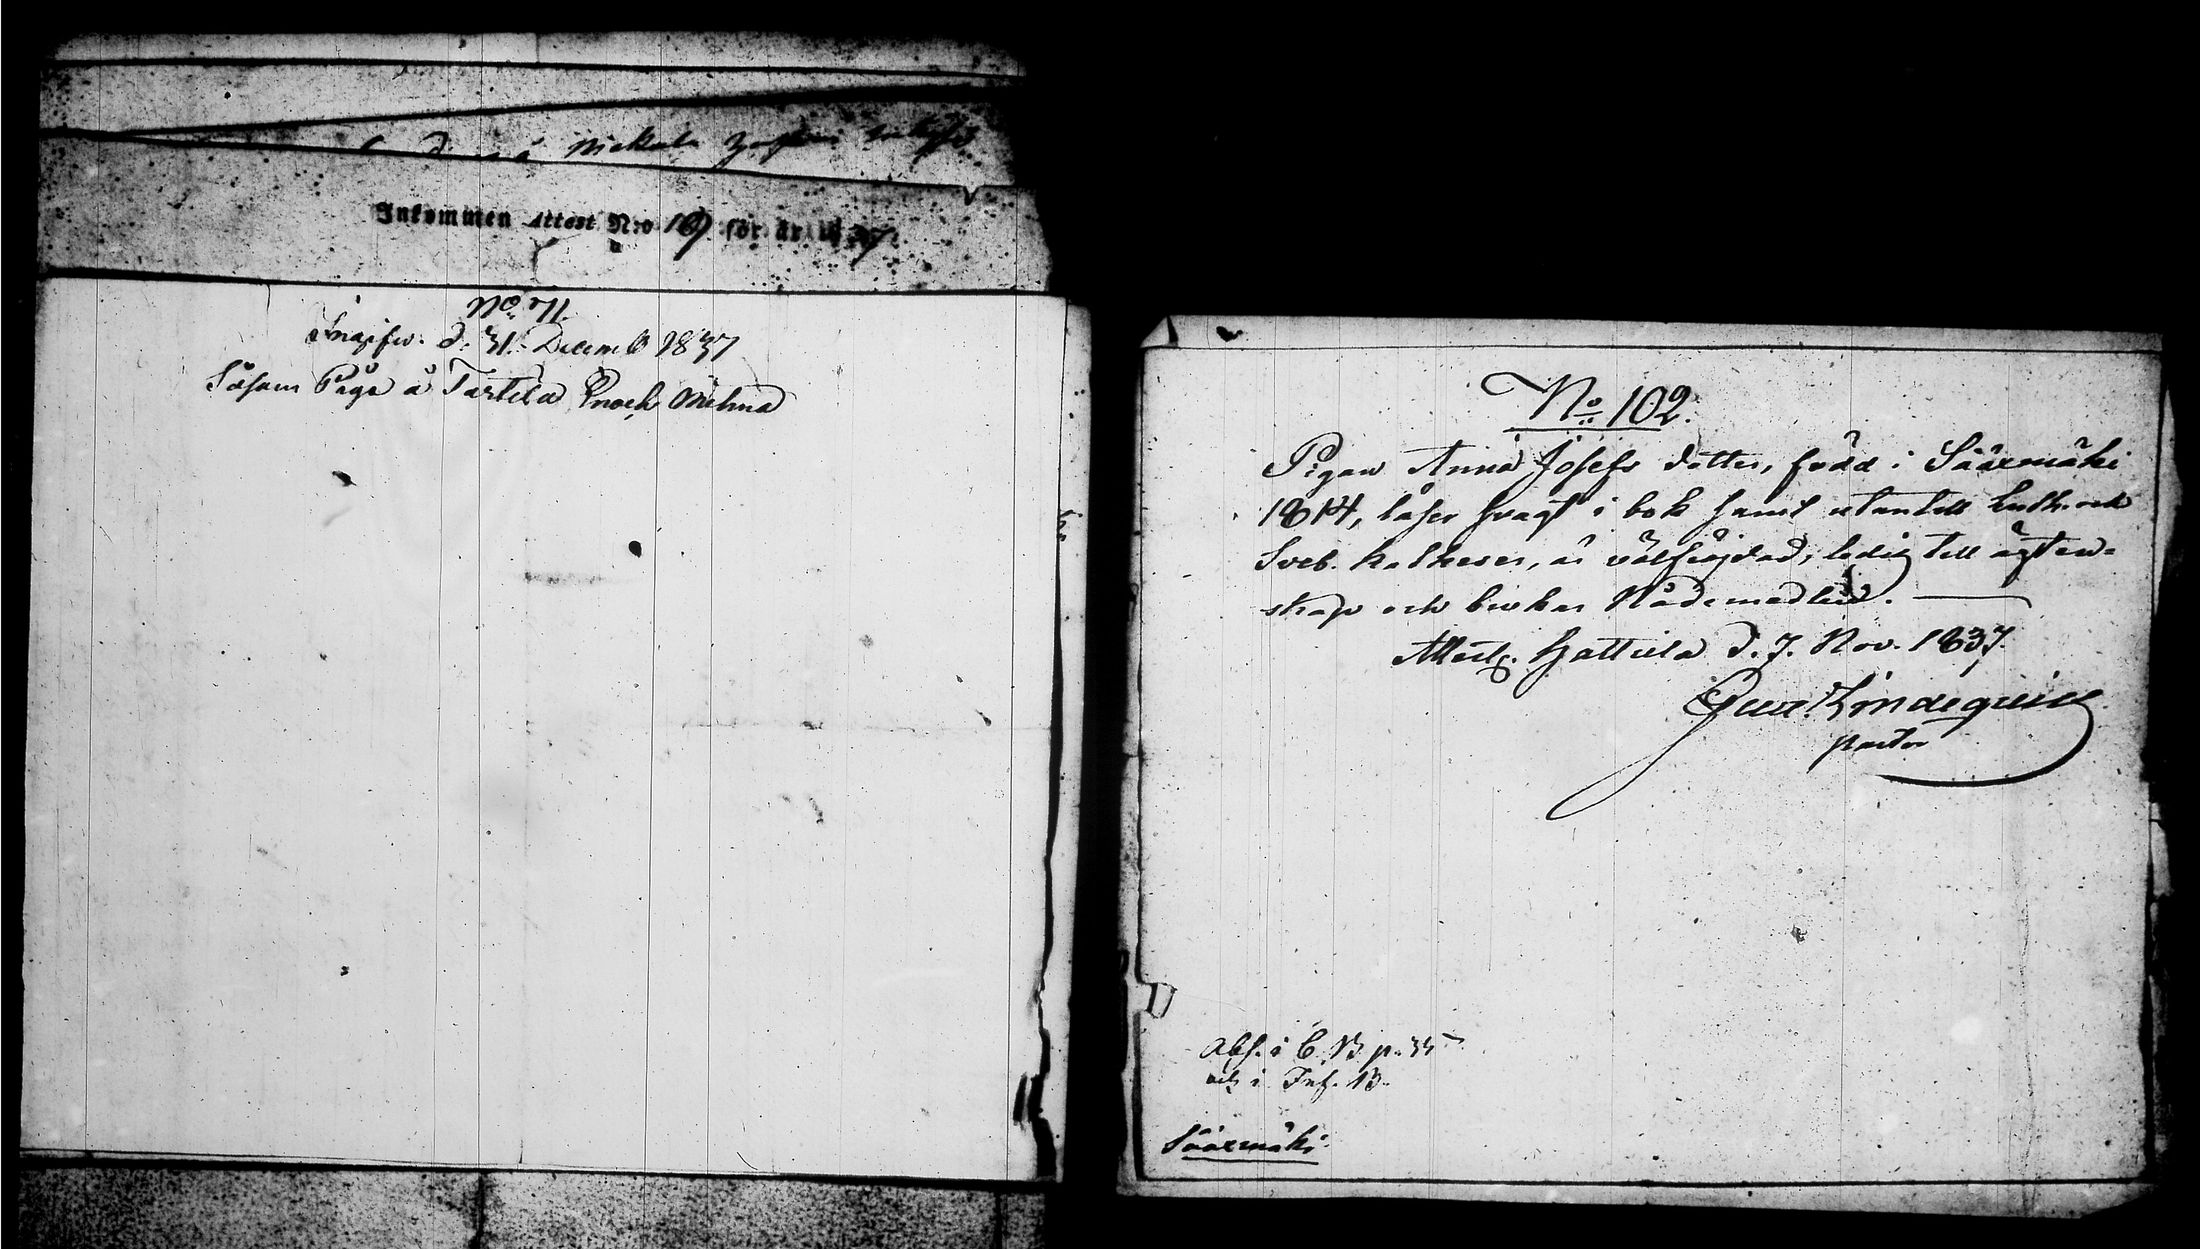 Nickala
Inkommen Attest N:o 109 för år 1837.
Inskrifv. d. 31. Decemb 1837
Såsom Piga å Tartila Enoch Mehua
No 102.
Pigan Anna Josefs dotter, född i Sääxmäki
1814, läser svagt i bok samt utantill Luth. och
Sveb. katheser, är välfräjdad, ledig till ägten=
skap och brukar Nådemedlen.
Attest. Hattula d. 7. Nov. 1837.
Gust. Lindequist
pastor
Abs. i C. B. p. 35
och i Inf. B.
Sääxmäki